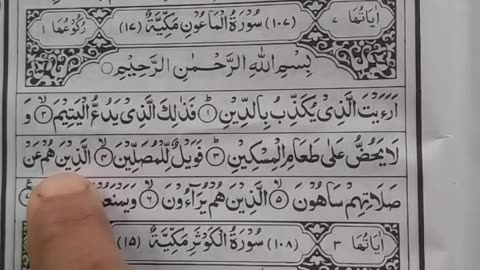 اٰیَاتُهَا ۷ (۱۰۷) سُوْرَةُ الْمَاعُوْنِ مَكِّيَّةٌ (۱۷) رُكُوْعُهَا ۱
بِسْمِ اللهِ الرَّحْمٰنِ الرَّحِيْمِ
اَرَءَيْتَ الَّذِيْ يُكَذِّبُ بِالدِّيْنِ ۱ فَذٰلِكَ الَّذِيْ يَدُعُّ الْيَتِيْمَ ۲ وَ
لَا يَحُضُّ عَلٰى طَعَامِ الْمِسْكِيْنِ ۳ فَوَيْلٌ لِّلْمُصَلِّيْنَ ۴ الَّذِيْنَ هُمْ عَنْ
صَلَاتِهِمْ سَاهُوْنَ ۵ الَّذِيْنَ هُمْ يُرَآءُوْنَ ۶
اٰیَاتُهَا ۳ (۱۰۸) سُوْرَةُ الْكَوْثَرِ مَكِّيَّةٌ (۱۵)